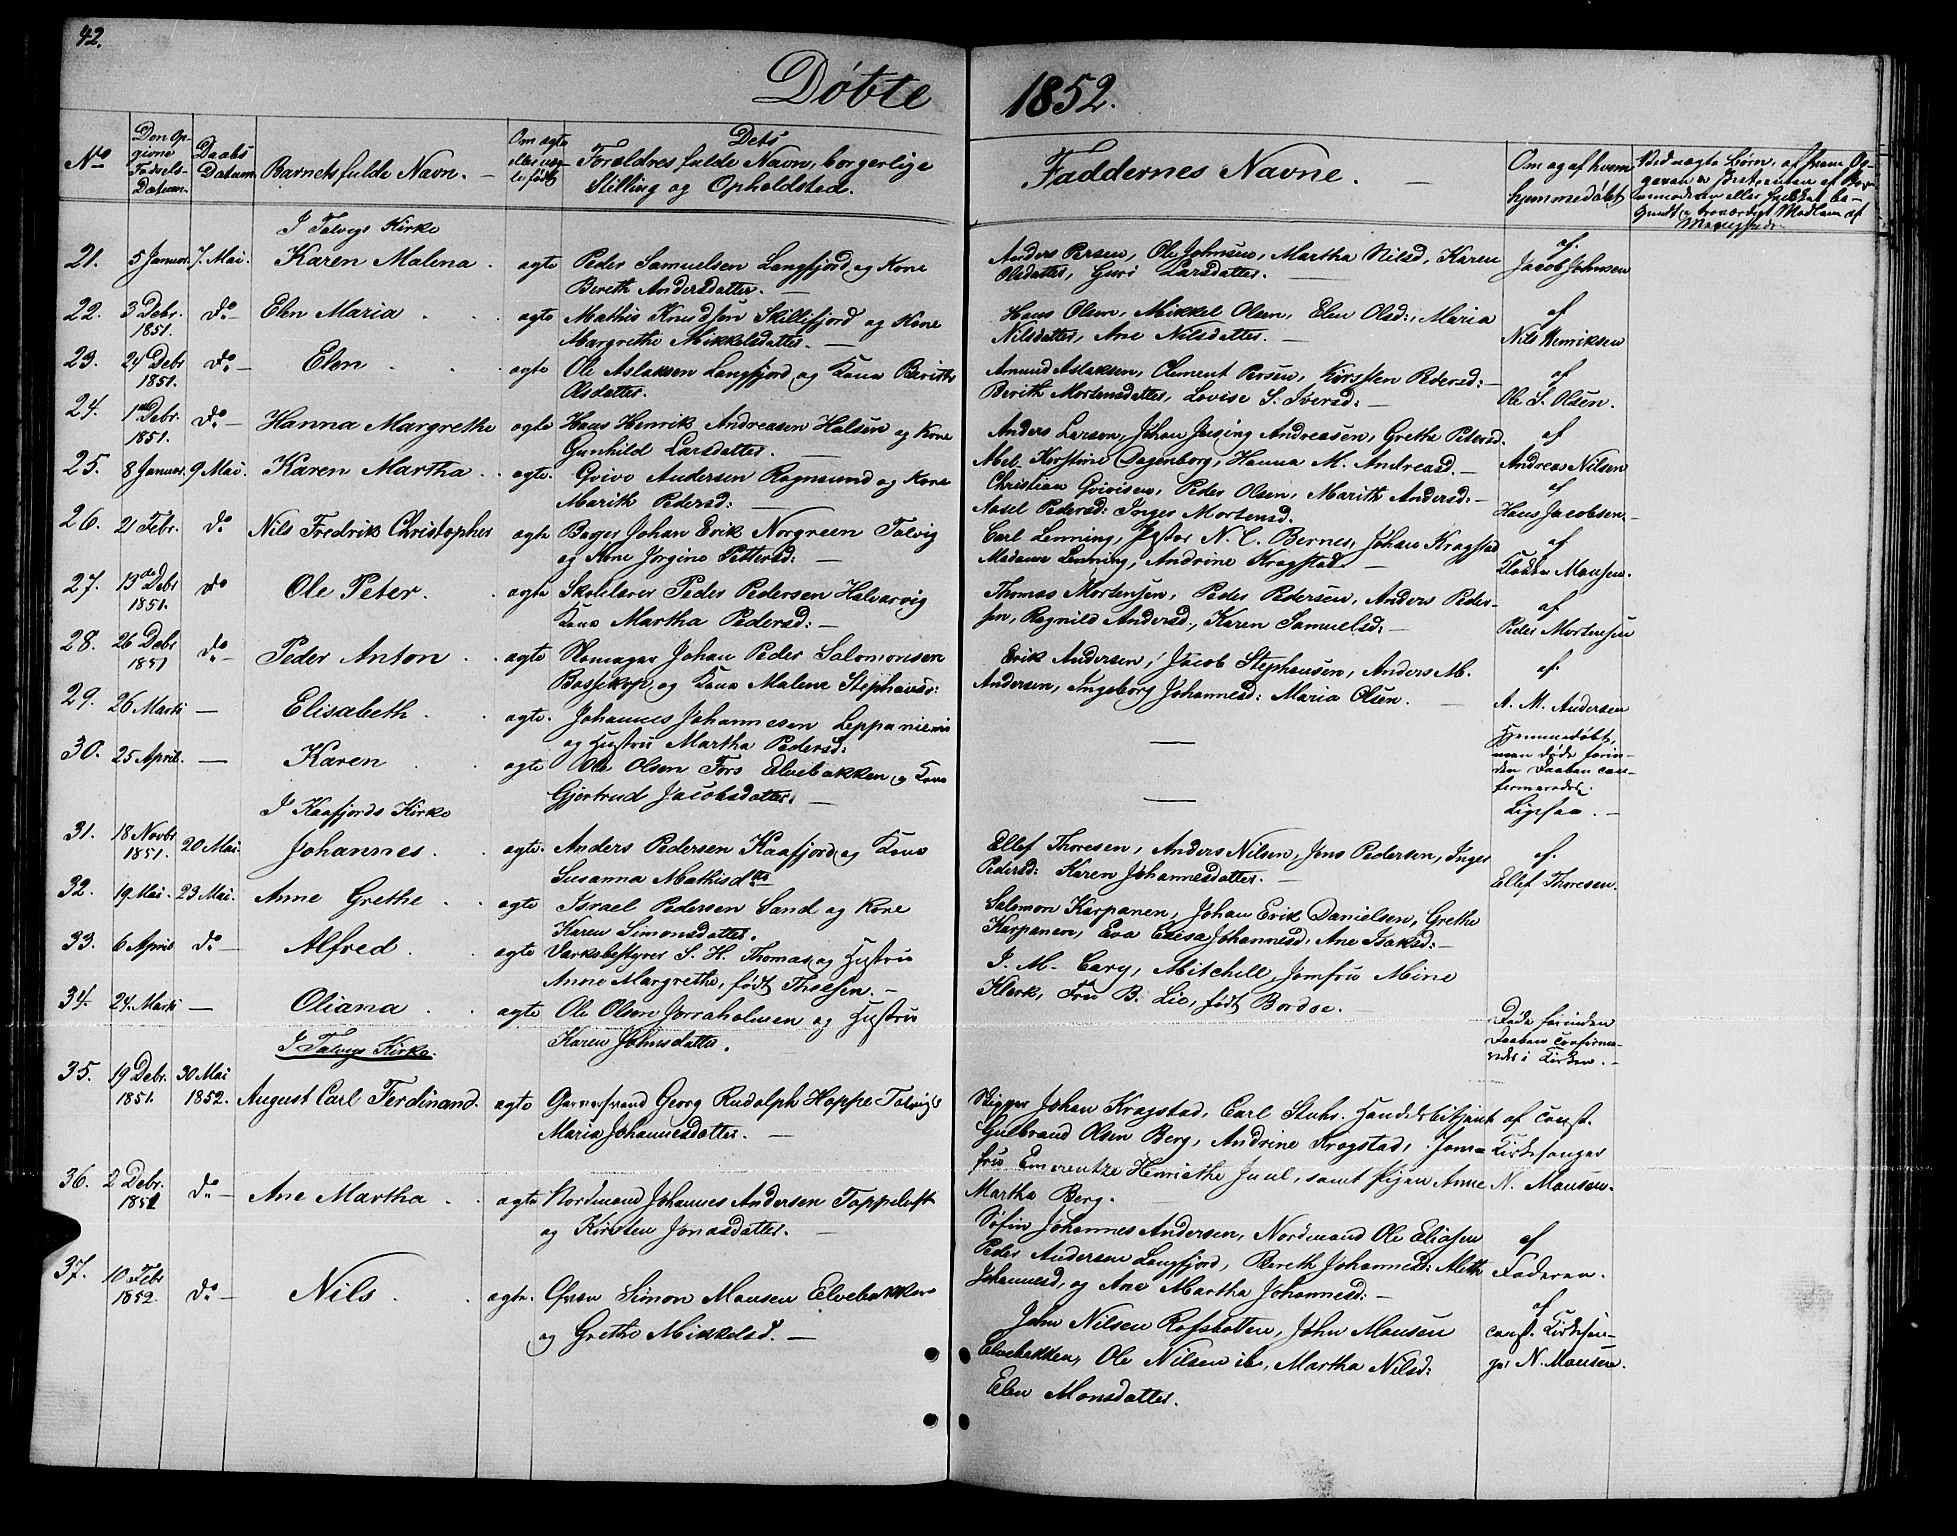 42.
Döbte
1852.
No
Den Op-
givne
Fødsels-
Datum.
Daabs
Datum
Barnets fulde Navn. —
Om ægte
eller uæg-
te født
Dets
Forældres fulde Navn, borgerlige
Stilling og Opholdsted.
Faddernes Navne. —
Om og af hvem
hjemmedøbt
I Talvigs Kirke
21. 5 Januar. 7. Mai. Karen Malena . ægte Peder Samuelsen Langfjord og Kone
Bereth Andersdatter. —
Anders Persen, Ole Johnsen, Martha Nilsd, Karen
Olsdatter, Guri Larsdatter. —
af.
Jacob Johnsen
22. 3 Debr. 1851. do — Elen Maria . . ægte Mathis Knudsen Skillifjord og Kone
Margrethe Mikkelsdatter. —
Hans Olsen, Mikkel Olsen, Elen Olsd:, Maria
Nilsdatter, Ane Nilsdatter. —
af
Nils Henriksen
23. 24 Debr 1851. do — Elen . . ægte Ole Aslaksen Langfjord og Kone Berith
Olsdatter.
Amund Aslaksen, Clement Persen, Kirsten Pedersd: —
Berith Mortensdatter, Lovise S. Iversd: —
af
Ole S. Olsen.
24. 1ste Debr. 1851. do — Hanna Margrethe ægte Hans Henrik Andreasen Halsen og Kone
Gunhild Larsdatter. —
Anders Larsen, Johan Jesing Andreasen, Grethe Pedersd.
Abel Kerstine Dagenborg, Hanna M. Andreasd. —
af
Andreas Nilsen
25. 8 Januar. 9 Mai. Karen Martha . . ægte. Gvivo Andersen Rognsund og Kone
Marith Pedersd: —
Christian Gvivisen, Peder Olsen, Marith Andersd: —
Aasel Pedersd: Inger Mortensd.
af
Hans Jacobsen —
26. 21 Febr. do Nils Fredrik Christopher ægte Johan Erik Norgreen Talvig
og Kone Jørgine Pettersd: —
Carl Lenning, N. C. Bernes, Johan Krogstad
Madame Lenning, Andrine Krogstad. —
af
Klokker Monsen.
27. 13de Debr 1851. do Ole Peter. . ægte Skolelærer Peder Pedersen Halvarvig
Kone Martha Pedersd: —
Thomas Mortensen, Peder Pedersen, Anders Peder-
sen, Ragnild Andersd., Karen Samuelsd: —
af
Peder Mortensen
28. 26 Debr 1851 do — Peder Anton . . ægte Johan Peder Salomonsen
Bossekop og Kone Malene Stephansd:
Erik Andersen, Jacob Stephansen, Anders M.
Andersen, Ingeborg Johannesd: Maria Olsen. —
af.
A. M. Andersen
29. 26 Marts — Elisabeth . . ægte. Johannes Johannesen Leppaniemi
og Hustru Martha Pedersd:
—
Hjemmedøbt,
men døde forin-
den Daaben con-
fermeredes.
30. 25 April. — Karen . ægte Ole Olsen Fors Elvebakken og Kone
Gjertrud Jacobsdatter. —
—
Ligesaa. —
I Kaafjords Kirke
31. 18 Novbr 1851. 20 Mai. Johannes . . ægte. Anders Pedersen Kaafjord og Kone
Susanna Mathisdtr
Ellef Thoresen, Anders Nilsen, Jens Pedersen, Inger
Pedersd: Karen Johannesdatter. —
af.
Ellef Thoresen.
32. 19 Mai. 23 Mai. Anne Grethe . . ægte Israel Pedersen Sand og Kone
Karen Simonsdatter.
Salomon Karpanen, Johan Erik Danielsen, Grethe
Karpanen, Eva Caisa Johannesd, Ane Isaksd: —
33. 6 April do — Alfred . . ægte Værksbestyrer S. H. Thomas og Hustru
Anne Margrethe, født Thesen. —
I. M. Cary, Mitchell, Jomfru Mine
Klerk, Fru B. Lie, født Bordoe. —
34. 24. Marts — Oliana . . ægte Ole Olsen Jorraholmen og Hustru
Karen Johnsdatter.
Døde forinden
Daaben confirme-
redes i Kirken. —
I Talvigs Kirke:
35. 19 Debr. 1851. 30 Mai 1852. August Carl Ferdinand. ægte Georg Rudolph Hoppe Talvig &
Maria Johannesdatter. —
Skipper Johan Krogstad, Carl Stuhr. Handelsbetjent
Gulbrand Olsen Berg, Andrine Krogstad, Jom-
fru Emerentze Henriethe Juul, samt Pigen Anne
Martha Berg. —
af const.
Kirkesanger
N. Monsen.
36. 2 Debr. 1851 do — Ane Martha . . ægte Nordmand Johannes Andersen Toppeluft
og Kirsten Jonasdatter. —
Johannes Andersen, Nordmand Ole Eliasen
Peder Andersen Langfjord, Bereth Johannesd: Aleth
Johannesd, og Ane Martha Johannesd: —
af
Faderen.
37. 10 Febr 1852. do — Nils . . ægte. Qvæn Simon Monsen Elvebakken
og Grethe Mikkelsd. —
John Nilsen Rafsbotten, John Monsen
Elvebakken, Ole Nilsen ib., Martha Nilsd:
Elen Monsdatter.
af
const. Kirkesan-
ger N. Monsen.